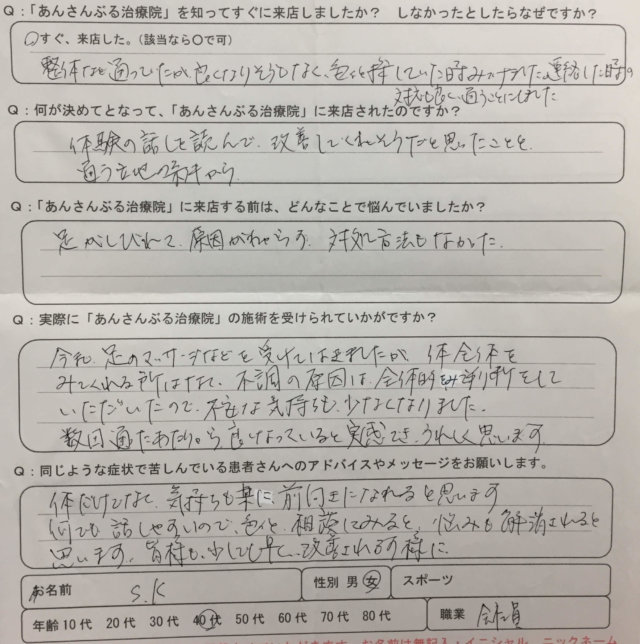 Q：「あんさんぶる治療院」を知ってすぐに来店しましたか？　しなかったとしたらなぜですか？
○すぐ、来店した。（該当なら○で可）
整体など通っていたが良くなりそうもなく、色々と探していた時みつけました。連絡した時の
対応も良く、通うことにしました
Q：何が決めてとなって、「あんさんぶる治療院」に来店されたのですか？
体験の話しを読んで、改善してくれそうだと思ったことと、
通う立地の条件から。
Q：「あんさんぶる治療院」に来店する前は、どんなことで悩んでいましたか？
足がしびれて、原因がわからず、対処方法もなかった。
Q：実際に「あんさんぶる治療院」の施術を受けられていかがですか？
今迄、足のマッサージなどを受けてはきましたが、体全体を
みてくれる所はなく、不調の原因は、全体的な診断をして
いただいたので、不安な気持ちも、少なくなりました。
数回通ったあたりから良くなっていると実感でき、うれしく思います。
Q：同じような症状で苦しんでいる患者さんへのアドバイスやメッセージをお願いします。
体だけでなく、気持ちも楽に、前向きになれると思います
何でも話しやすいので、色々と、相談してみると、悩みも解消されると
思います。皆様も、少しでも早く、改善されます様に
お名前　S.K　性別 男 女　スポーツ
年齢 10代　20代　30代　40代　50代　60代　70代　80代　職業　会社員